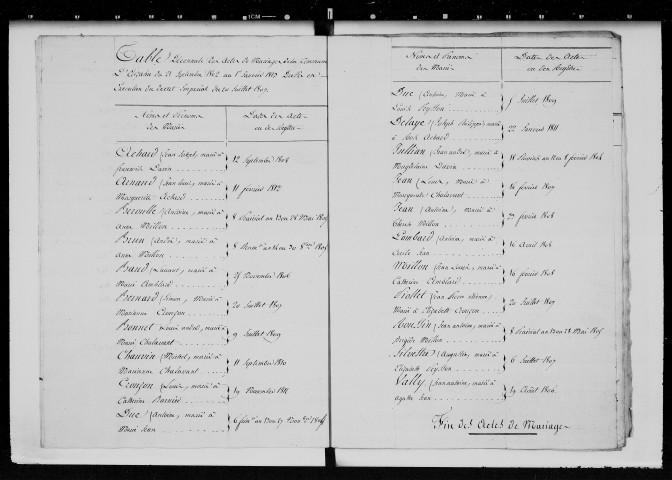 Table Décennale des Actes de Mariage de la Commune
D' du 21 Septembre 1802 au 1er Janvier 1813 Dressée en
Exécution du Décret Impérial du 20 Juillet 1807.
Noms et Prénoms
des Mariés
Dates des Actes
ou des Registres
Achard (Jean Joseph, marié à
françoise Davin
12 Septembre 1806
Arnaud (Jean Louis, marié à
Marguerite Achard
11 février 1812
(Antoine, marié à
Anne Moillon
8 Prairial an 13 ou 28 Mai 1805
Brun (André, marié à
Anne Moillon
8
Baud (Laurent, marié à
Marie Amblard
25 Novembre 1806
Bernard (Simon, Marié à
Marianne Creuzon
20 Juillet 1807
Bonnet (Louis andré, marié à
Marie Chalavant
9 Juillet 1809
Chauvin (Michel, marié à
Marianne Chalavant
11 Septembre 1810
Creuzon (Louis, marié à
Catherine Barnier
19 Novembre 1811
Duc (Antoine, marié à
Marie Jean
Noms et Prénoms
des Mariés
Dates des Actes
ou des Registres
Duc (Antoine, Marié à
Louise Peysson
5 Juillet 1809
Delaye (Joseph Philippe, marié
à Rose Achard
22 Janvier 1811
Jullian (Jean andré, marié à
Magdelaine Davin
Jean (Louis, Marié à
Marguerite Chalavant
16 février 1807
Jean (Antoine, marié à
Moillon
27 février 1808
Lombard (Antoine, marié à
Cécile Jean
16 Avril 1806
Moillon (Jean Louis, marié à
Catherine Amblard
16 février 1808
(Jean Pierre
Marié à Elizabeth Creuzon
20 Juillet 1807
(Jean antoine, marié à
Brigite Moillon
8 Prairial an 13 ou 28 Mai 1805
Silvestre (Augustin, marié à
Elizabeth Peysson
6 Juillet 1807
Vally (Jean antoine, marié à
Agathe Jean
19 Août 1806
Fin des Actes de Mariage